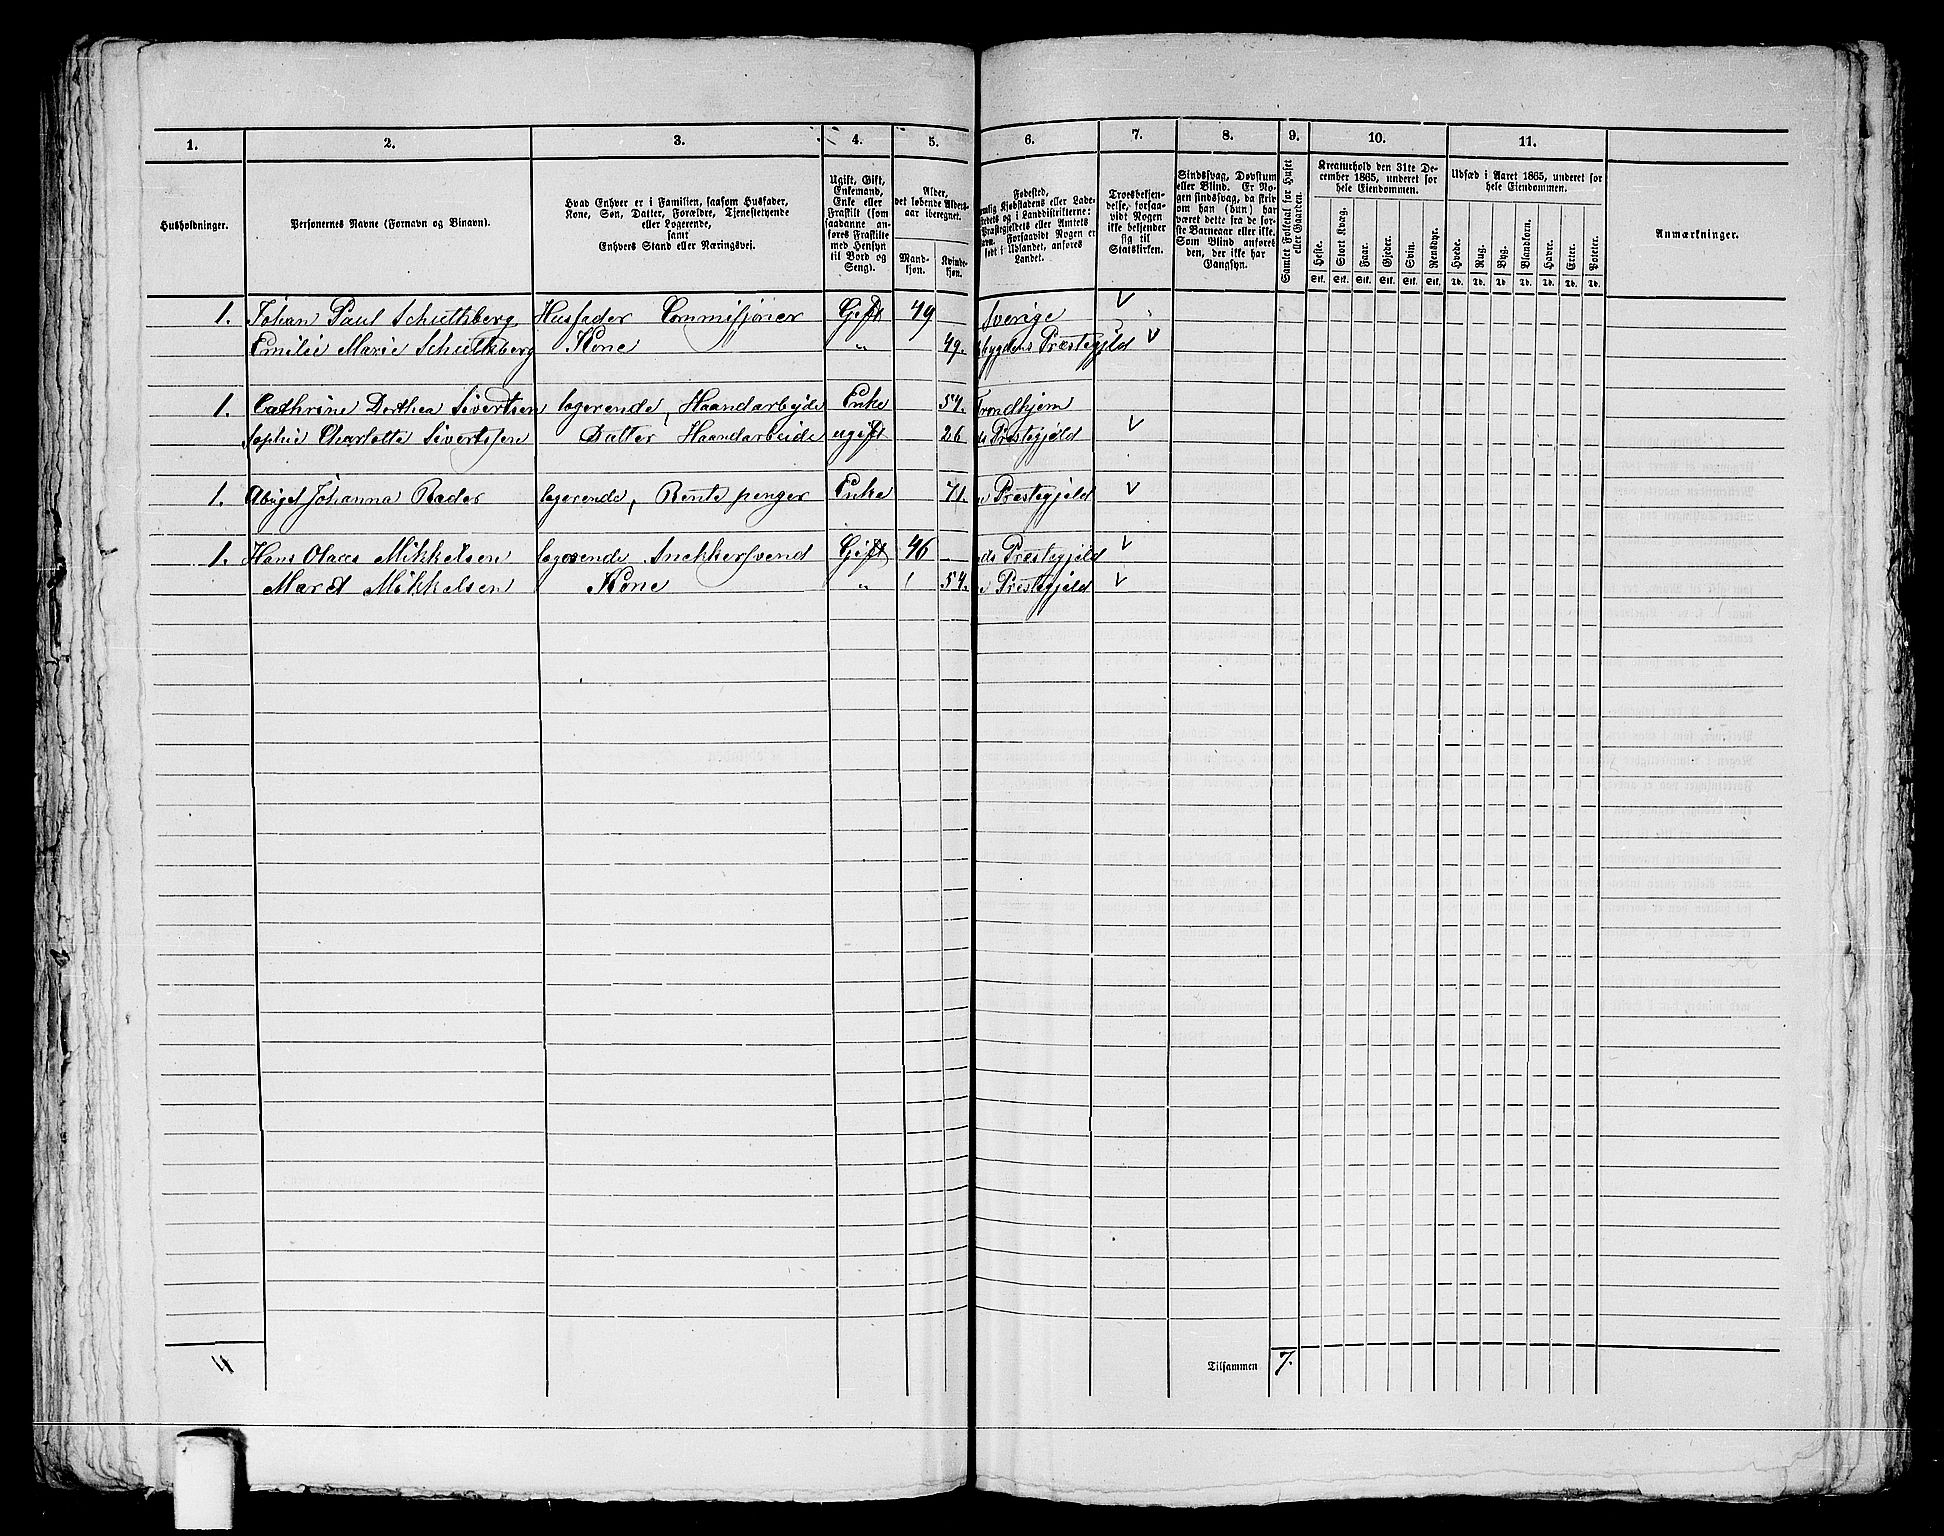 1. 2. 3. 4. 5. 6. 7. 8. 9. 10. 11.
Husholdninger.
Personernes Navne (Fornavn og Binavn).
Hvad Enhver er i Familien, saasom Husfader,
Kone, Søn, Datter, Forældre, Tjenestetyende
eller Logerende,
samt
Enhvers Stand eller Næringsvei.
Ugift, Gift,
Enkemand,
Enke eller
Fraskilt (som
saadanne an-
føres Fraskilte
med Hensyn
til Bord og
Seng).
Alder,
det løbende Alders-
aar iberegnet.
Mand-
kjøn.
Kvinde-
kjøn.
Fødested,
emlig Kjøbstadens eller Lade-
stedets og i Landdistrikterne:
Præstegjeldets eller Amtets
avn. Forsaavidt Nogen er
født i Udlandet, anføres
Landet.
Troesbekjen-
delse, forsaa-
vidt Nogen
ikke bekjender
sig til
Statskirken.
Sindssvag, Døvstum
eller Blind. Er No-
gen sindssvag, da skriv
om han (hun) har
været dette fra de før-
ste Barneaar eller ikke.
Som Blind anføres
den, der ikke har
Gangsyn.
Samlet Folketal for Huset
eller Gaarden.
Kreaturhold den 31te De-
cember 1865, underet for
hele Eiendommen.
Heste. Stort Kvæg. Faar. Gjeder. Svin. Rensdyr.
Stk. Stk. Stk. Stk. Stk. Stk.
Udsæd i Aaret 1865, underet for
hele Eiendommen.
Hvede. Rug. Byg. Blandkorn. Havre. Erter. Poteter.
Td. Td. Td. Td. Td. Td. Td.
Anmærkninger.
1. Johan Paul Schultzberg Husfader Commisjonær Gift 49 Sverige
Emilie Marie Schultzberg Kone „ 49. bygdens Præstegjeld
1. Cathrine Dorthea Sivertsen logerende, Haandarbejde Enke 54. Trondhjem
Sophie Charlotte Sivertsen Datter Haandarbeide ugift 26 ds Præstegjeld
1. Johanna Rader logerende, Rentepenger Enke 71. n Præstegjeld
1. Hans Mikkelsen logerende Snekkersvend Gift 46 nds Præstegjeld
Maret Mikkelsen Kone „ 54. Præstegjeld
4
Tilsammen 7.